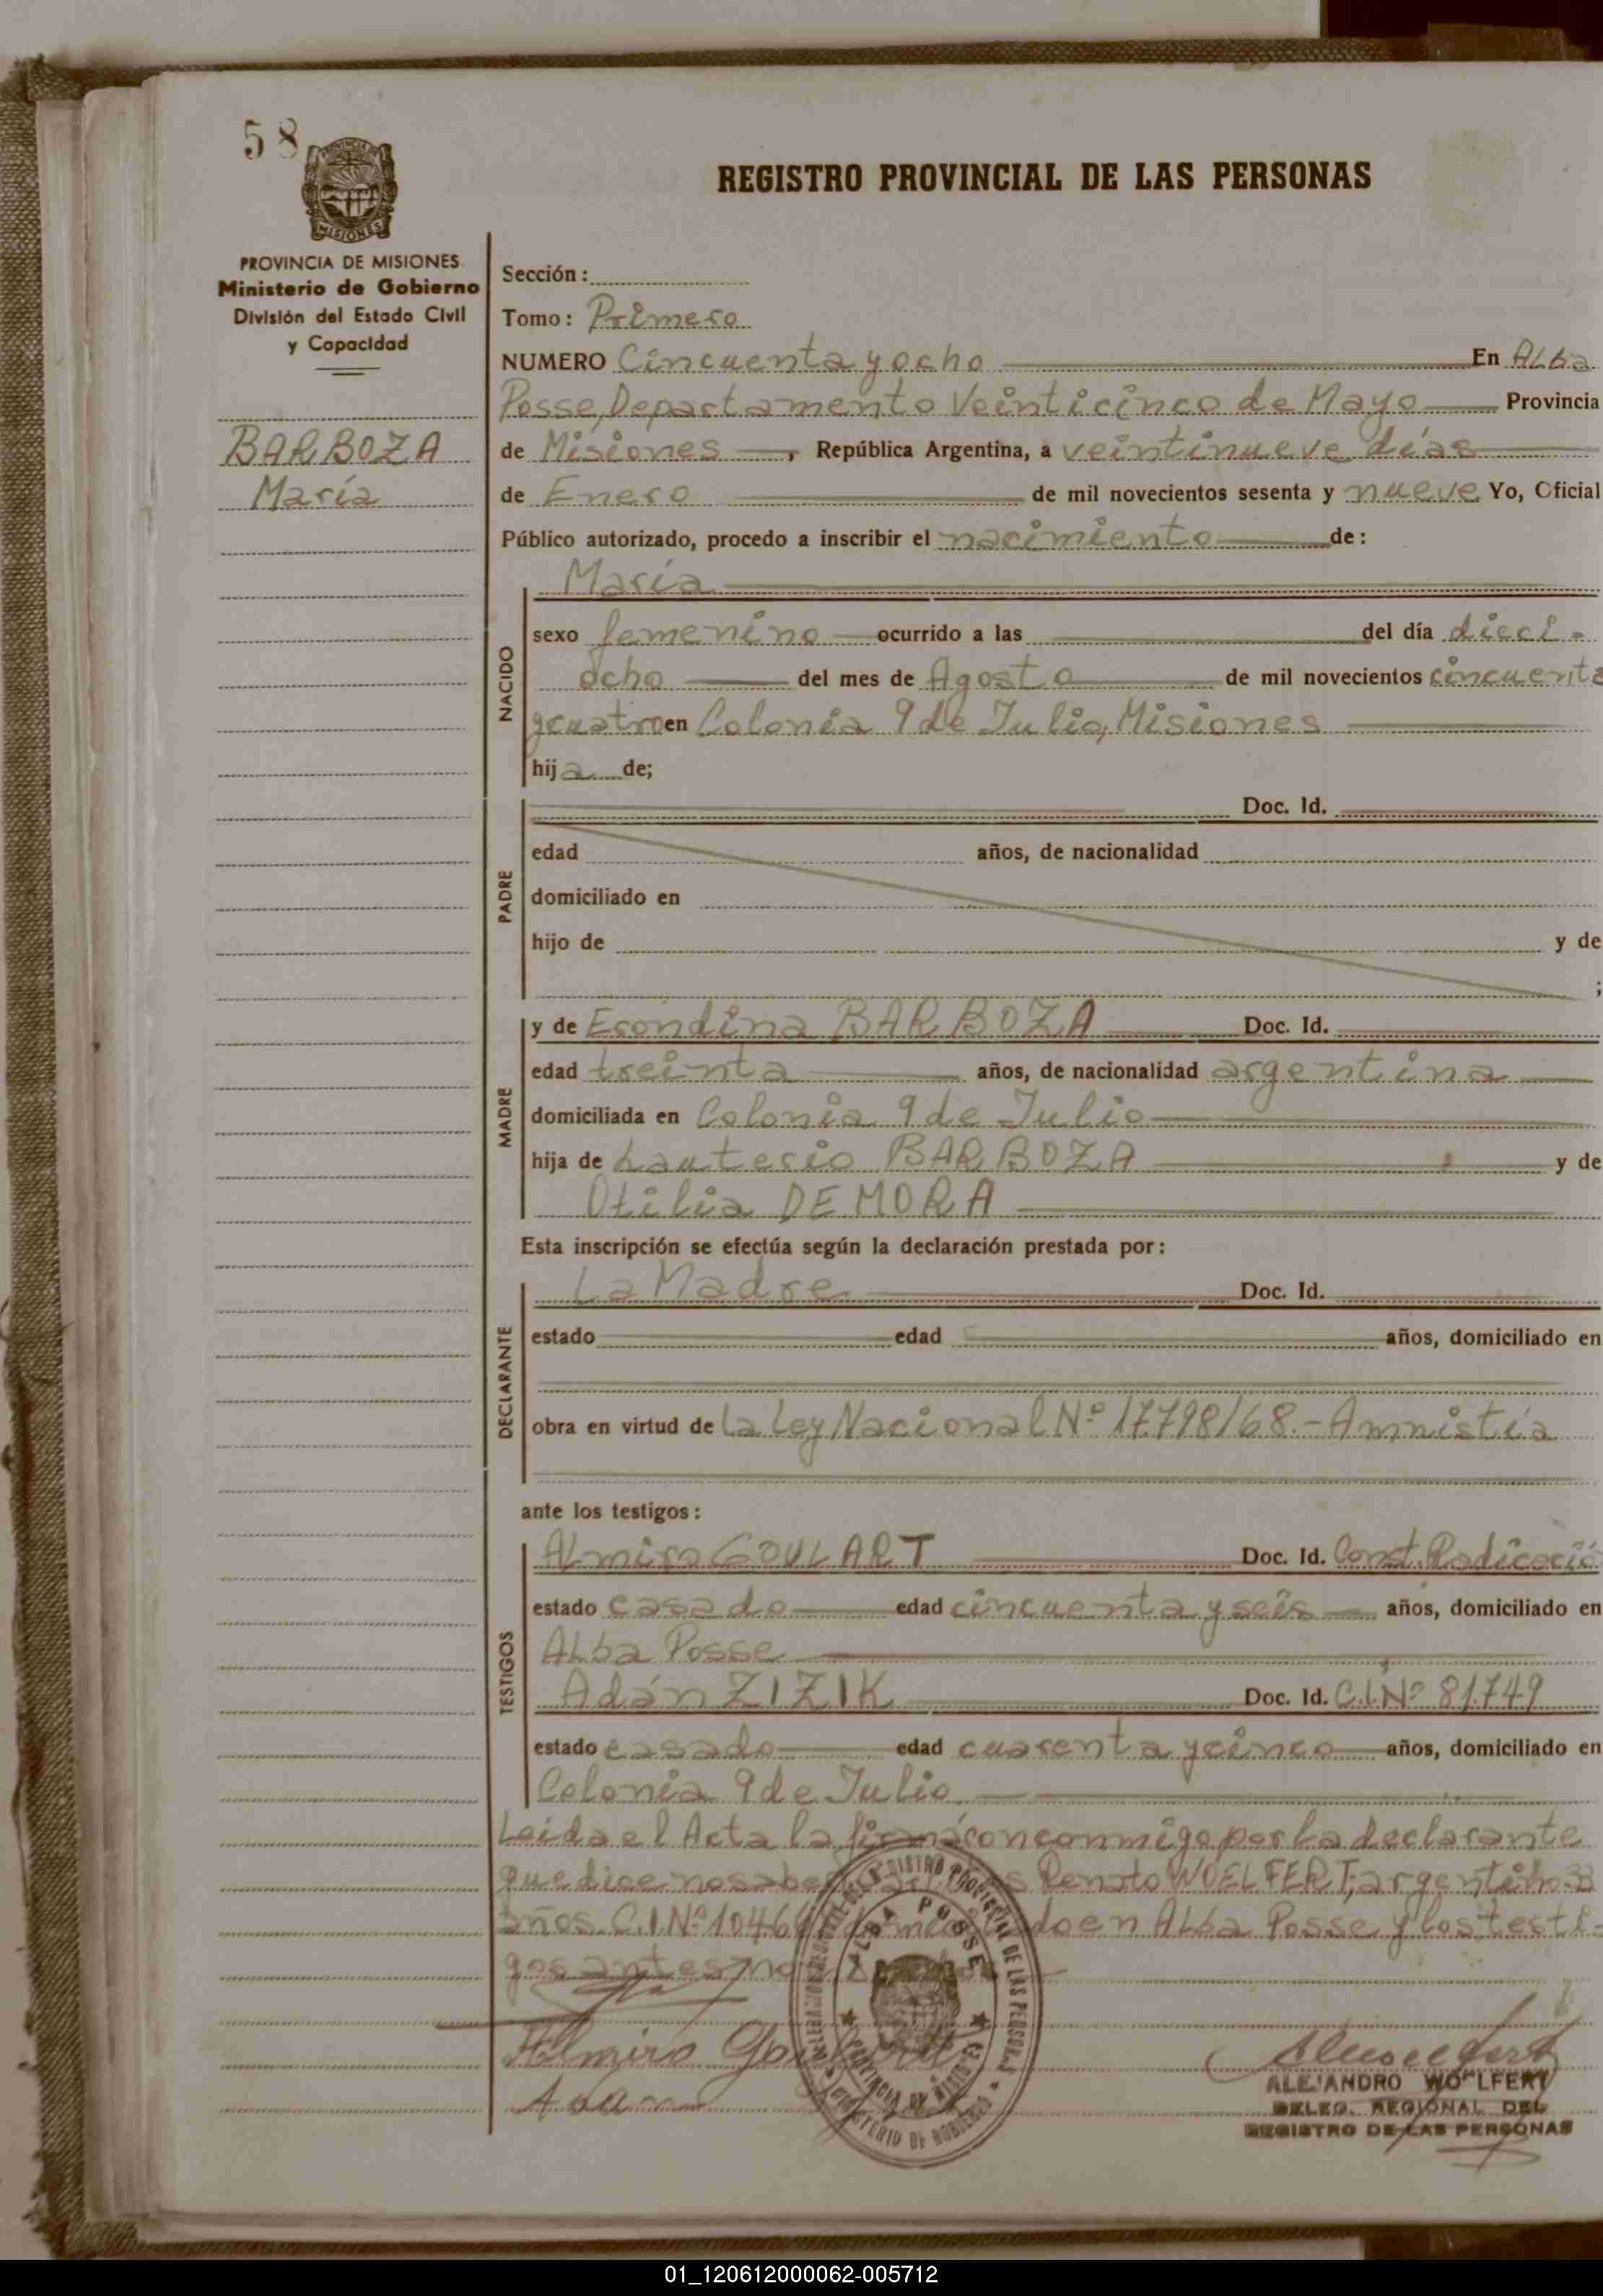 58
PROVINCIA DE MISIONES
Ministerio de Gobierno
División del Estado Civil
y Capacidad
BARBOZA
María
REGISTRO PROVINCIAL DE LAS PERSONAS
Sección:
Tomo: Primero
NUMERO Cincuenta y ocho En ALba
Posse, Departamento Veinticinco de Mayo Provincia
de Misiones, República Argentina, a veintinueve días
de Enero de mil novecientos sesenta y nueve Yo, Oficial
Público autorizado, procedo a inscribir el nacimiento de:
NACIDO
María
sexo femenino ocurrido a las del día dieci-
ocho del mes de Agosto de mil novecientos cincuenta
y cuatro en Colonia 9 de Julio, Misiones
hija de;
PADRE
Doc. Id.
edad años, de nacionalidad
domiciliado en
hijo de y de
;
MADRE
y de Erondina BARBOZA Doc. Id.
edad treinta años, de nacionalidad argentina
domiciliada en Colonia 9 de Julio
hija de Lauterio BARBOZA y de
Otilia DE MORA
Esta inscripción se efectúa según la declaración prestada por:
DECLARANTE
La Madre Doc. Id.
estado edad años, domiciliado en
obra en virtud de La Ley Nacional Nº 17.798/68.- Amnistía
ante los testigos:
TESTIGOS
Almiro GOULART Doc. Id. Const. Radicació
estado casado edad cincuenta y seis años, domiciliado en
ALba Posse
Adán ZIZIK Doc. Id. C.I.Nº 81.749
estado casado edad cuarenta y cinco años, domiciliado en
Colonia 9 de Julio
Leida el Acta la firmá con conmigo por la declarante
que dice no sabe Renato WOELFERT, argentino 33
años C.I.Nº 1046 en ALba Posse y los testi-
gos antes
Almiro
Adán
ALBA POSSE
PROVINCIA DE MISIONES
MINISTERIO DE GOBIERNO
REGISTRO PROVINCIAL DE LAS PERSONAS
ALEJANDRO WOHLFERT
DELEG. REGIONAL DEL
REGISTRO DE LAS PERSONAS
01_120612000062-005712